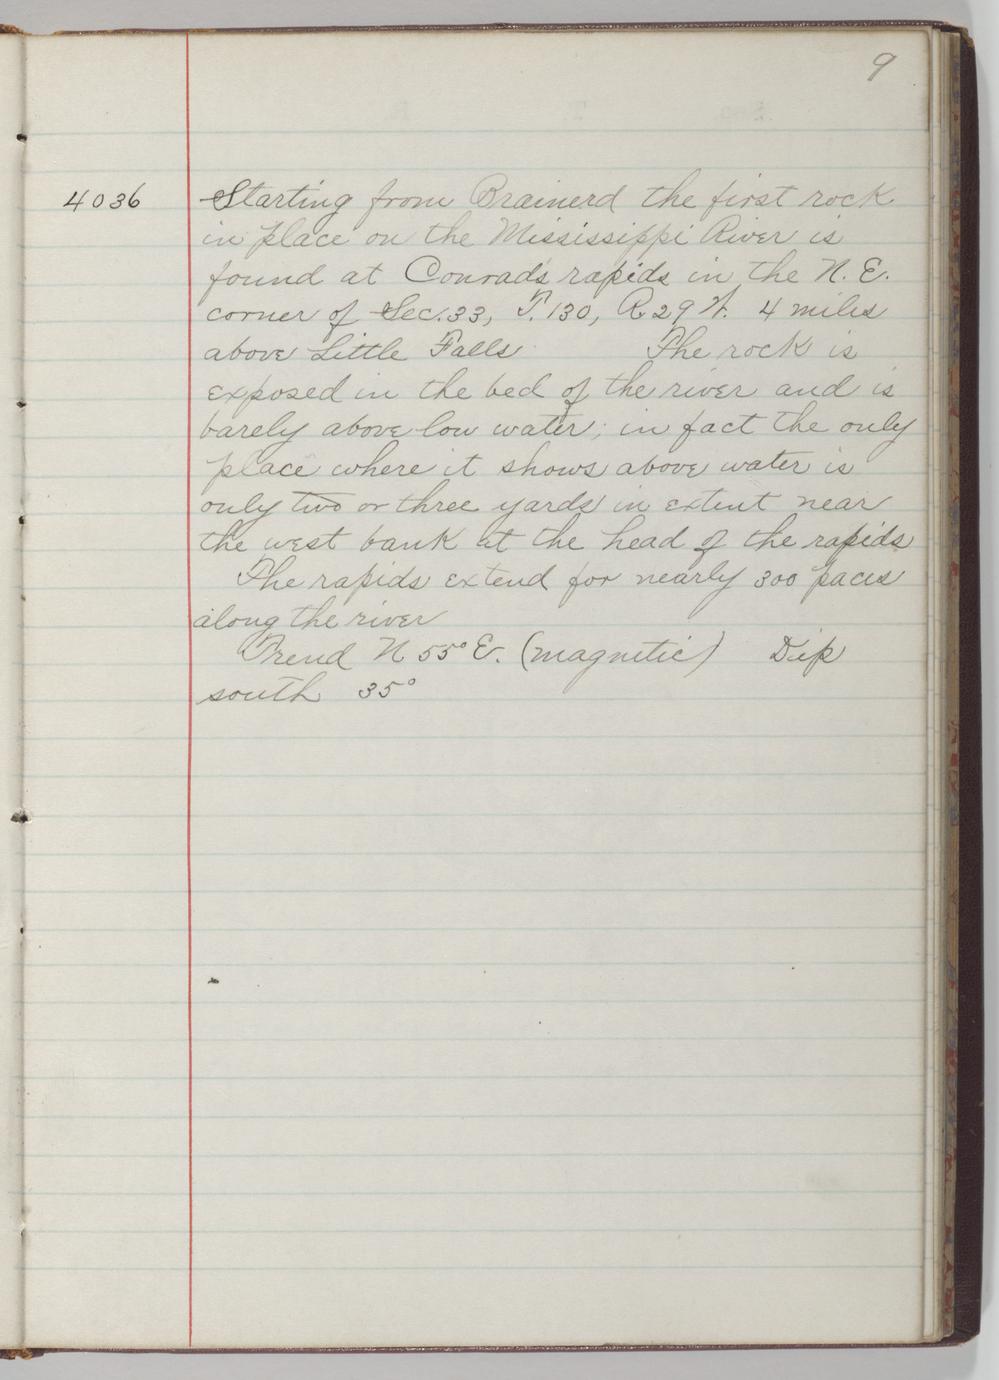 9
4036 Starting from Brainerd the first rock
in place on the Mississippi River is
found at Conrads rapids in the N. E.
corner of Sec. 33, T. 130, R 29 W. 4 miles
above Little Falls The rock is
exposed in the bed of the river and is
barely above low water; in fact the only
place where it shows above water is
only two or three yards in extent near
the west bank at the head of the rapids
The rapids extend for nearly 300 paces
along the river
Trend N 55° E. (magnetic) Dip
south 35°